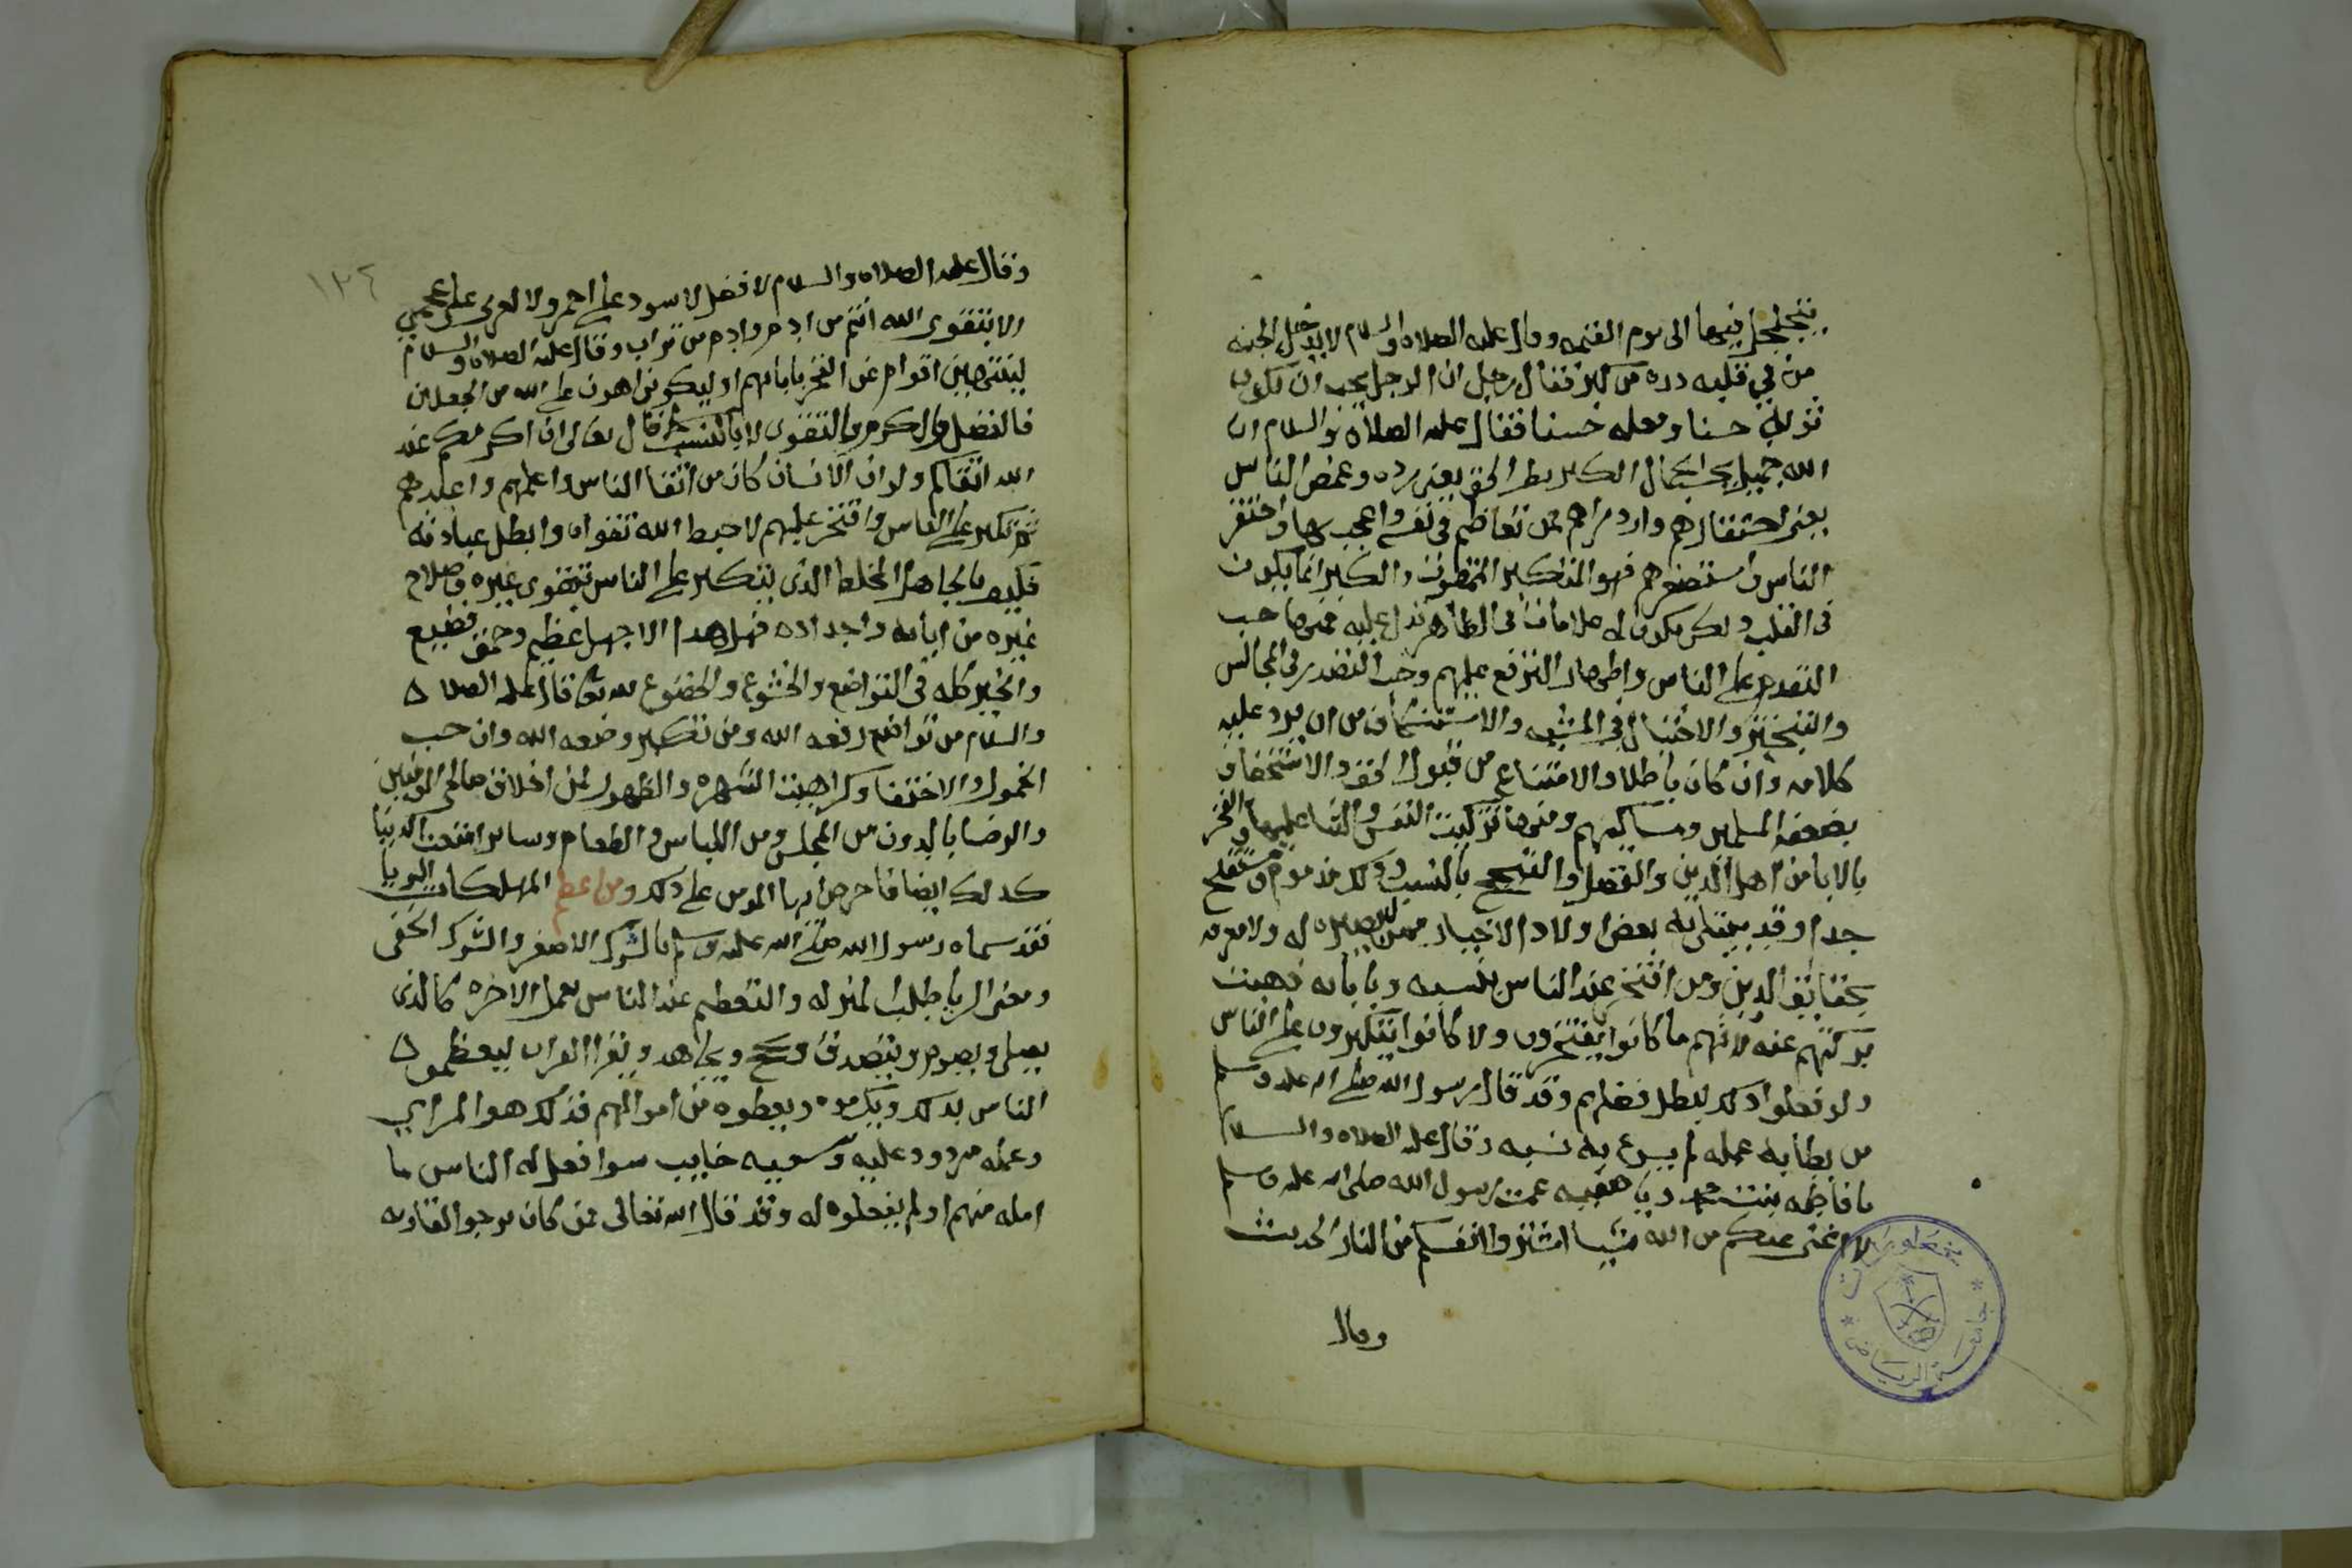 يتجلجل فيها الى يوم القيمه وقال عليه الصلاه والسلام لا يدخل الجنه
من في قلبه ذره من كبر فقال رجل ان الرجل يحب ان يكون
ثوبه حسنا ونعله حسنا فقال عليه الصلاة والسلام ان
الله جميل يحب الجمال الكبر بطر الحق يعني رده وغمض الناس
يعني احتقارهم وازدراهم فمن تعاظم في نفسه واعجب بها واحتقر
الناس واستصغرهم فهو المتكبر الممقوت والكبر انما يكون
في القلب ولكن يكون له علامات في الظاهر تدل عليه فمنها حب
التقدم على الناس واظهار الترفع عليهم وحب التصدر في المجالس
والتبختر والاختيال في المشيه والاستنكاف من ان يرد عليه
كلامه وان كان باطلا والامتناع من قبول الحق والاستخفاف
بضعفه المسلمين ومساكينهم ومنها تزكيت النفس والثنا عليها والفخر
بالابا من اهل الدين والفضل والتبجح بالنسب وذلك مذموم ومستقبح
جدا وقد يبتلى به بعض اولاد الاخيار ممن لا بصيره له ولا معرفه
بحقايق الدين ومن افتخر عند الناس بنسبه وبابايه ذهبت
بركتهم عنه لانهم ما كانوا يفتخرون ولا كانوا يتكبرون على الناس
ولو فعلوا ذلك لبطل فضلهم وقد قال رسول الله صلى الله عليه وسلم
من بطا به عمله لم يسرع به نسبه وقال عليه الصلاه والسلام
يا فاطمه بنت محمد ويا صفيه عمت رسول الله صلى الله عليه وسلم
لا اغني عنكم من الله شيا اشتروا انفسكم من النار الحديث
وقال
مخطوطات
جامعة الرياض
١٣٤
وقال عليه الصلاه والسلام لا فضل لاسود على احمر ولا لعربي على عجمي
الا بتقوى الله انتم من ادم وادم من تراب وقال عليه الصلاه والسلام
لينتهين اقوام عن الفخر بابايهم او ليكونن اهون على الله من الجعلان
فالفضل والكرم بالتقوى لا بالنسب كما قال تعالى ان اكرمكم عند
الله اتقاكم ولو ان الانسان كان من اتقا الناس واعلمهم واعبدهم
ثم تكبر على الناس وافتخر عليهم لاحبط الله تقواه وابطل عبادته
فكيف بالجاهل المخلط الذي يتكبر على الناس بتقوى غيره وصلاح
غيره من ابايه واجداده فهل هذا الا جهل عظيم وحمق فظيع
والخير كله في التواضع والخشوع والخضوع لله تعالى قال عليه الصلاة
والسلام من تواضع رفعه الله ومن تكبر وضعه الله وان حب
الخمول والاختفا وكراهيت الشهره والظهور لمن اخلاق صالحي المومنين
والرضا بالدون من المجلس ومن اللباس والطعام وساير امتعت الدنيا
كذلك ايضا فاحرص ايها المومن على ذلك ومن اعظم المهلكات الريا
فقد سماه رسول الله صلى الله عليه وسلم بالشرك الاصغر والشرك الخفي
ومعنى الريا طلب المنزله والتعظيم عند الناس بعمل الاخره كالذي
يصلي ويصوم ويتصدق ويحج ويجاهد ويقرا القران ليعظموه
الناس بذلك ويكرموه ويعطوه من اموالهم فذلك هو المرايي
وعمله مردود عليه وسعيه خايب سوا فعل له الناس ما
امله منهم او لم يفعلوه له وقد قال الله تعالى فمن كان يرجو القاربه